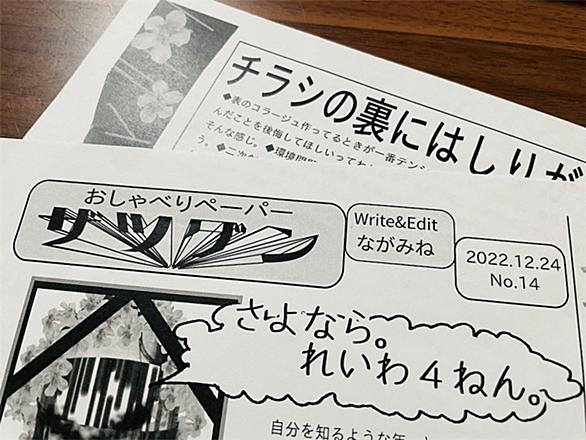 チラシの裏にはしりが
◆表のコラージュ作ってるときが一番テンシ
んだことを後悔してほしいってわ
そんな感じ。◆環境問題
う。◆二次
おしゃべりペーパー
ザツブン
Write&Edit
ながみね
2022.12.24
No.14
さよなら。
れいわ4ねん。
自分を知るような年